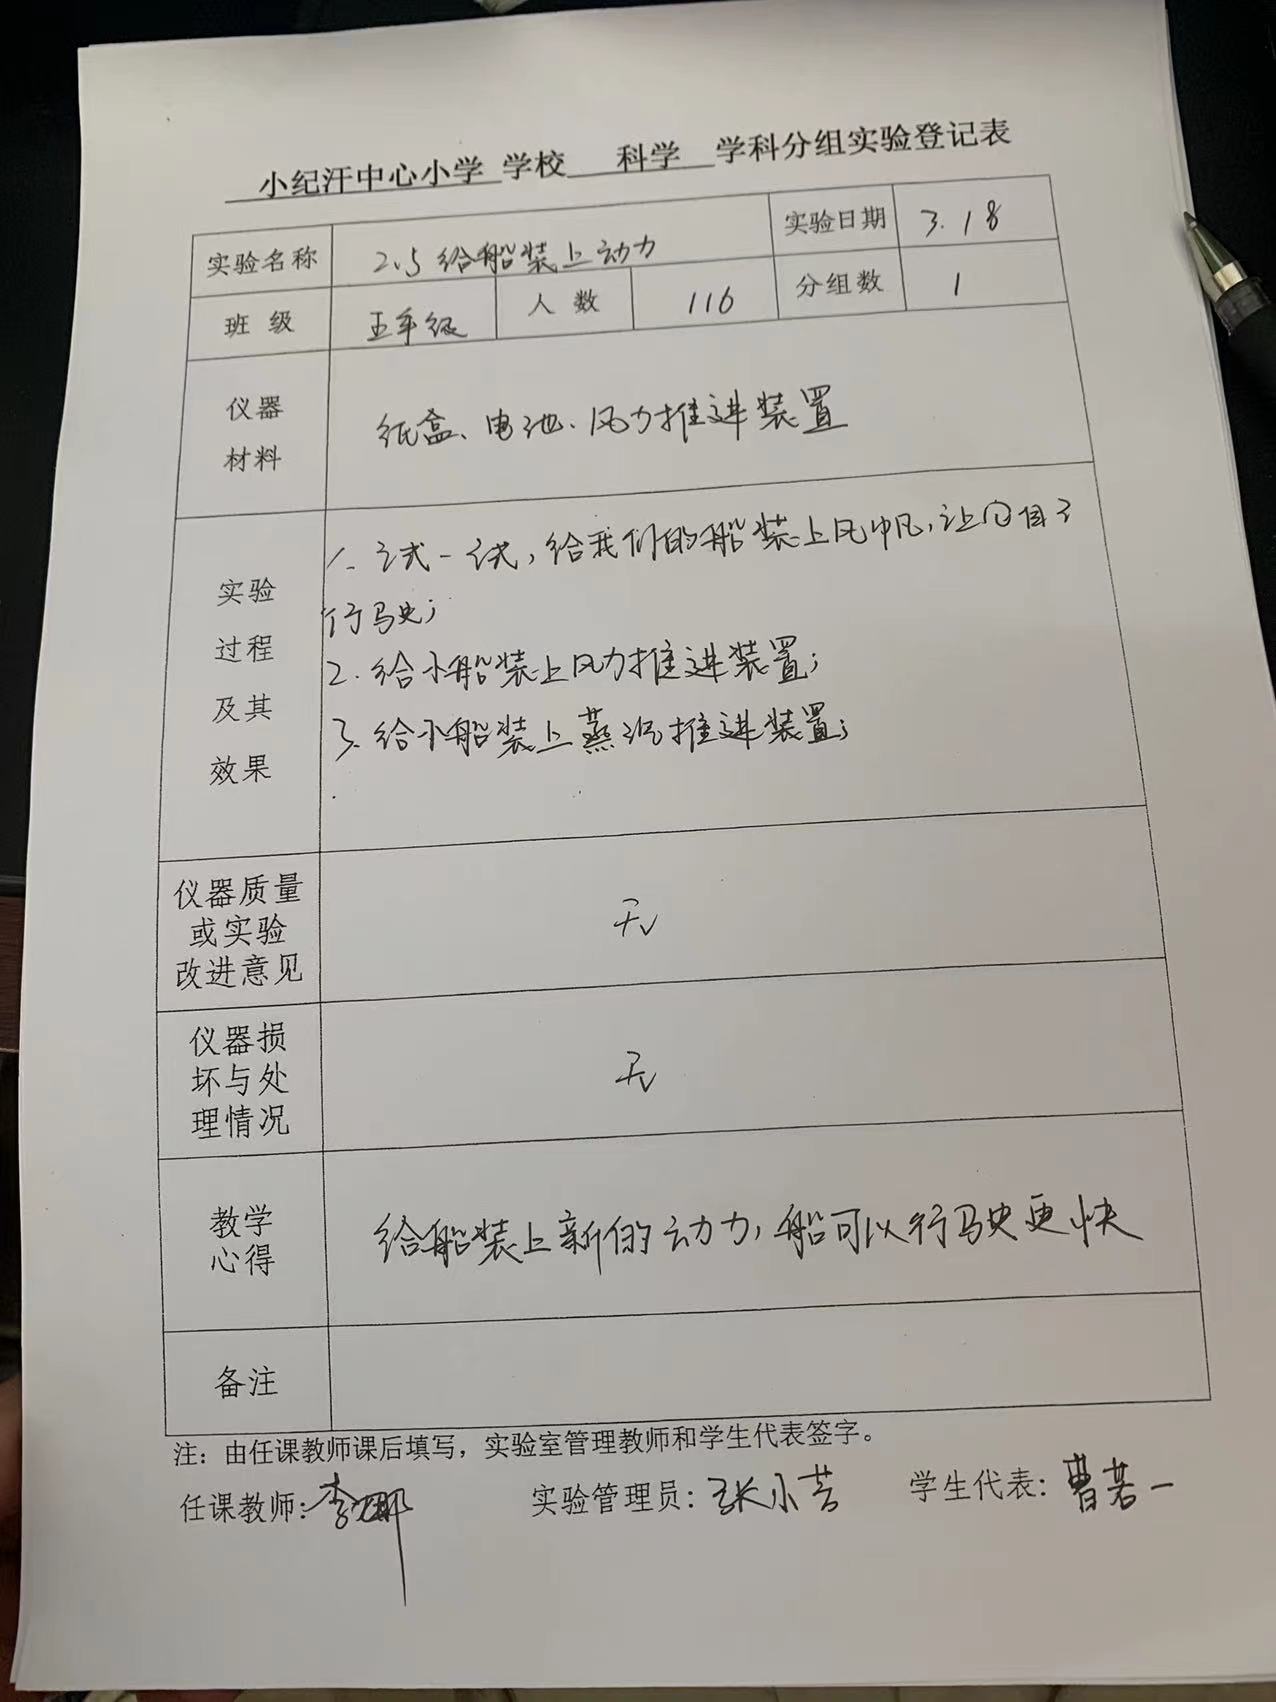 小纪汗中心小学 学校 科学 学科分组实验登记表
实验名称 2.5给船装上动力 实验日期 3.18
班级 五年级 人数 116 分组数 1
仪器
材料
纸盒、电池、风力推进装置
实验
过程
及其
效果
1. 试一试,给我们的船装上风帆,让它自己
行驶;
2. 给小船装上风力推进装置;
3. 给小船装上蒸汽推进装置;
仪器质量
或实验
改进意见
无
仪器损
坏与处
理情况
无
教学
心得
给船装上新的动力,船可以行驶更快
备注
注:由任课教师课后填写,实验室管理教师和学生代表签字。
任课教师:李娜 实验管理员:张小芸 学生代表:曹若一